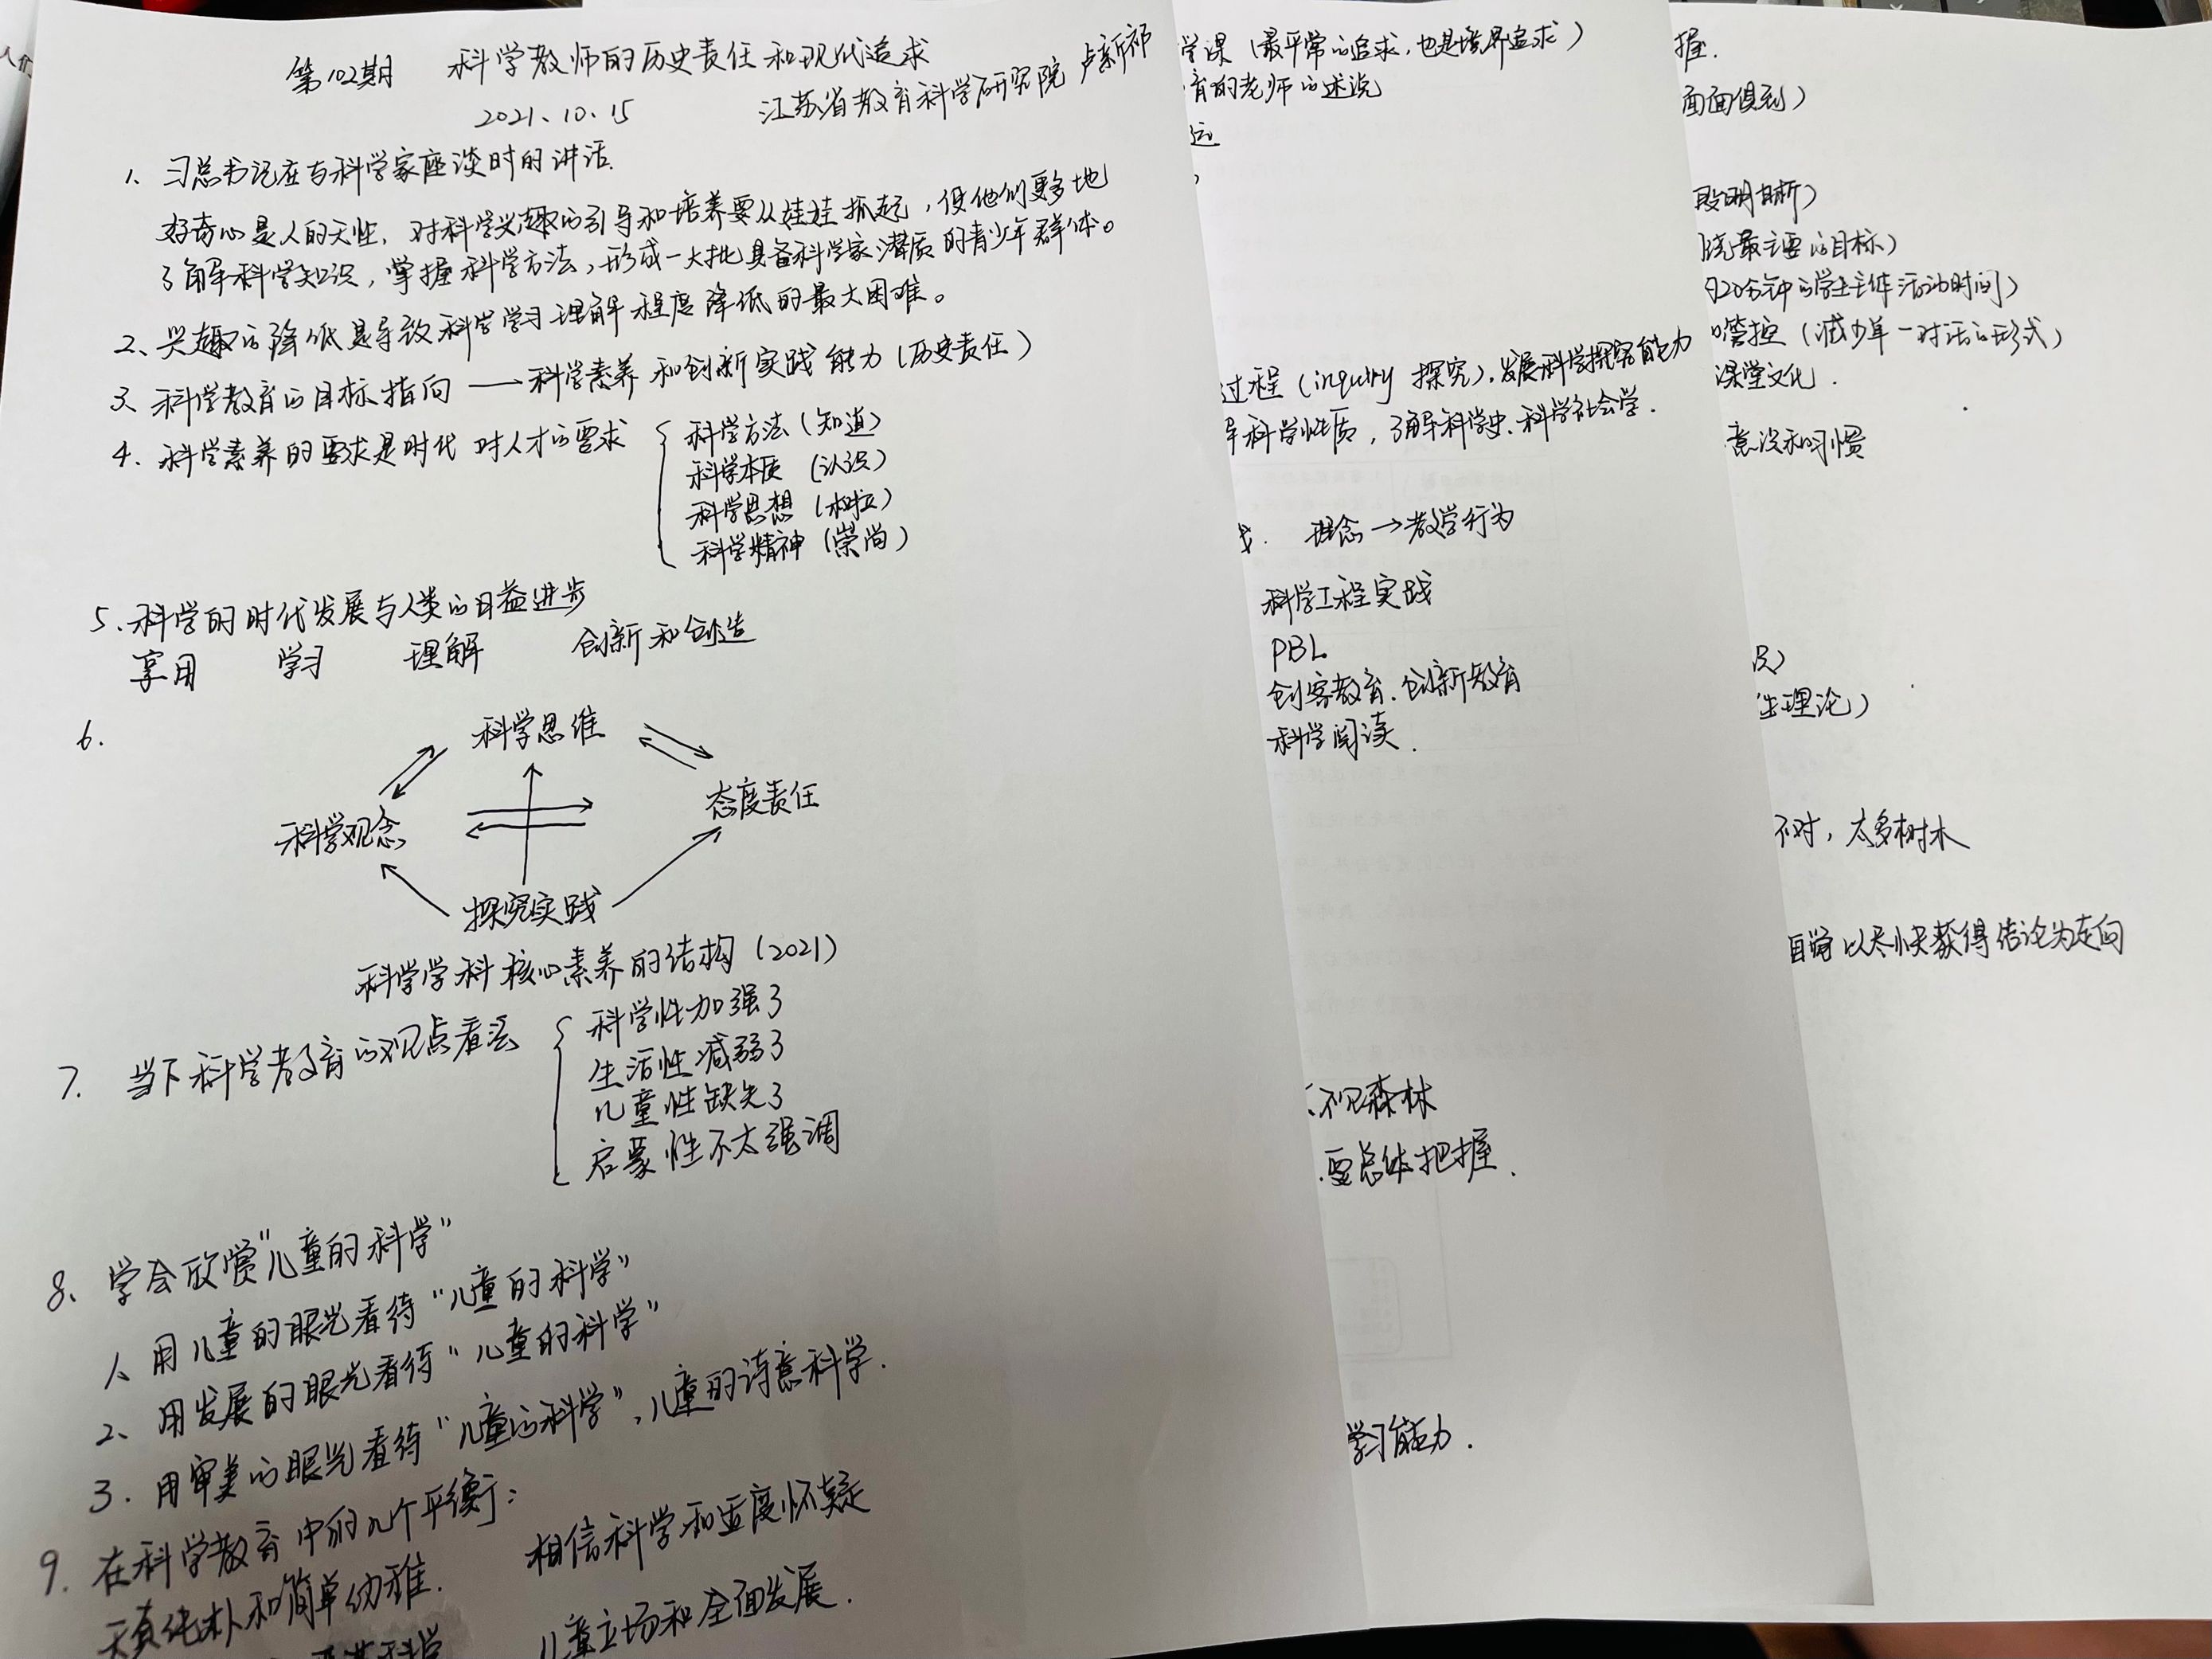 第102期 科学教师的历史责任和现代追求
2021.10.15 江苏省教育科学研究院 卢新祁
1、习总书记在与科学家座谈时的讲话.
好奇心是人的天性，对科学兴趣的引导和培养要从娃娃抓起，使他们更多地
了解科学知识，掌握科学方法，形成一大批具备科学家潜质的青少年群体。
2、兴趣的降低是导致科学学习理解程度降低的最大困难。
3、科学教育的目标指向 —— 科学素养和创新实践能力（历史责任）
4、科学素养的要求是时代对人才的要求
科学方法（知道）
科学本质（认识）
科学思想（树立）
科学精神（崇尚）
5、科学的时代发展与人类的日益进步
享用 学习 理解 创新和创造
6.
科学思维
科学观念
态度责任
探究实践
科学学科核心素养的结构（2021）
7. 当下科学教育的观点看法
科学性加强了
生活性减弱了
儿童性缺失了
启蒙性不太强调
8、学会欣赏“儿童的科学”
1、用儿童的眼光看待“儿童的科学”
2、用发展的眼光看待“儿童的科学”
3. 用审美的眼光看待“儿童的科学”，儿童的诗意科学.
9. 在科学教育中的几个平衡：
天真纯朴和简单幼稚. 相信科学和适度怀疑
科学 儿童立场和全面发展.
学课（最平常的追求，也是境界追求）
育的老师的述说
远
过程（inquiry 探究），发展科学探究能力
科学性质，了解科学史、科学社会学.
理念→教学行为
科学工程实践
PBL
创客教育、创新教育
科学阅读.
不见森林
要总体把握.
学习能力.
握.
面面俱到）
段明晰）
最主要的目标）
20分钟的学生主体活动时间）
管控（减少单一对话的形式）
课堂文化.
意识和习惯
生理论）
不对，太多树木
自觉以尽快获得结论为走向